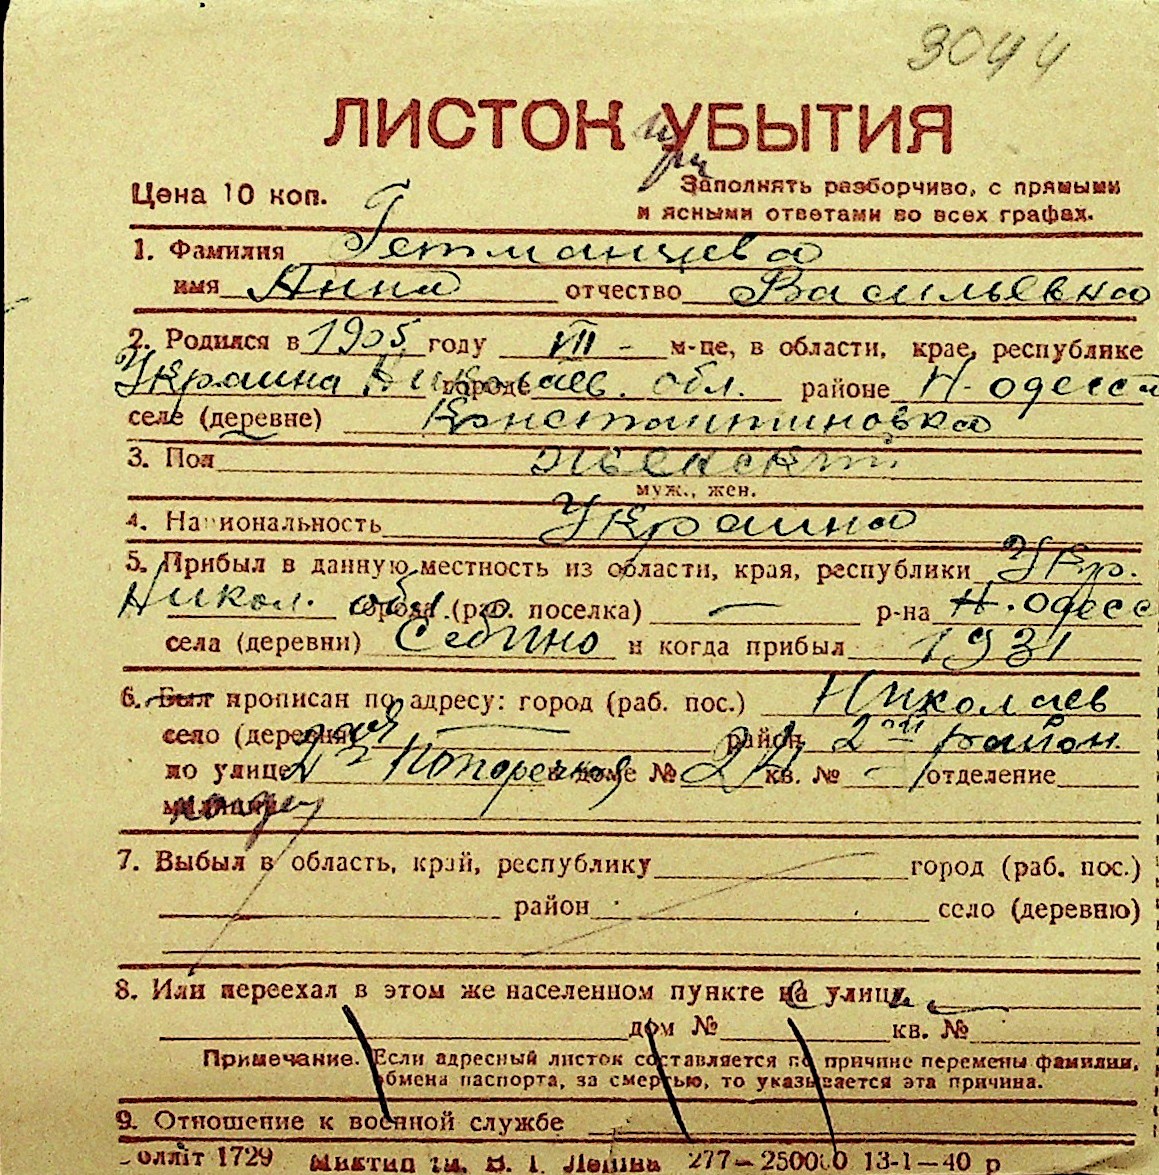 3044
ЛИСТОК УБЫТИЯ
при
Цена 10 коп.
Заполнять разборчиво, с прямыми
и ясными ответами во всех графах.
1. Фамилия Гетманцева
имя Анна отчество Васильевна
2. Родился в 1905 году VIII - м-це, в области, крае, республике
Украина Николаев. обл. городе районе Н. одесса
селе (деревне) Константиновка
3. Пол женский
муж., жен.
4. Национальность Украинка
5. Прибыл в данную местность из области, края, республики Укр.
Никол. обл. города (раб. поселка) — р-на Н. одесс
села (деревни) Себино и когда прибыл 1931
6. Был прописан по адресу: город (раб. пос.) Николаев
село (деревня) — район 2ой район
по улице 2я Поперечная в доме № 24 кв. № — отделение
милиции
7. Выбыл в область, край, республику город (раб. пос.)
район село (деревню)
8. Или переехал в этом же населенном пункте на улицу
дом № кв. №
Примечание. Если адресный листок составляется по причине перемены фамилии,
обмена паспорта, за смертью, то указывается эта причина.
9. Отношение к военной службе
олліт 1729 Миктип ім. В. І. Леніна 277—250000 13-1—40 р